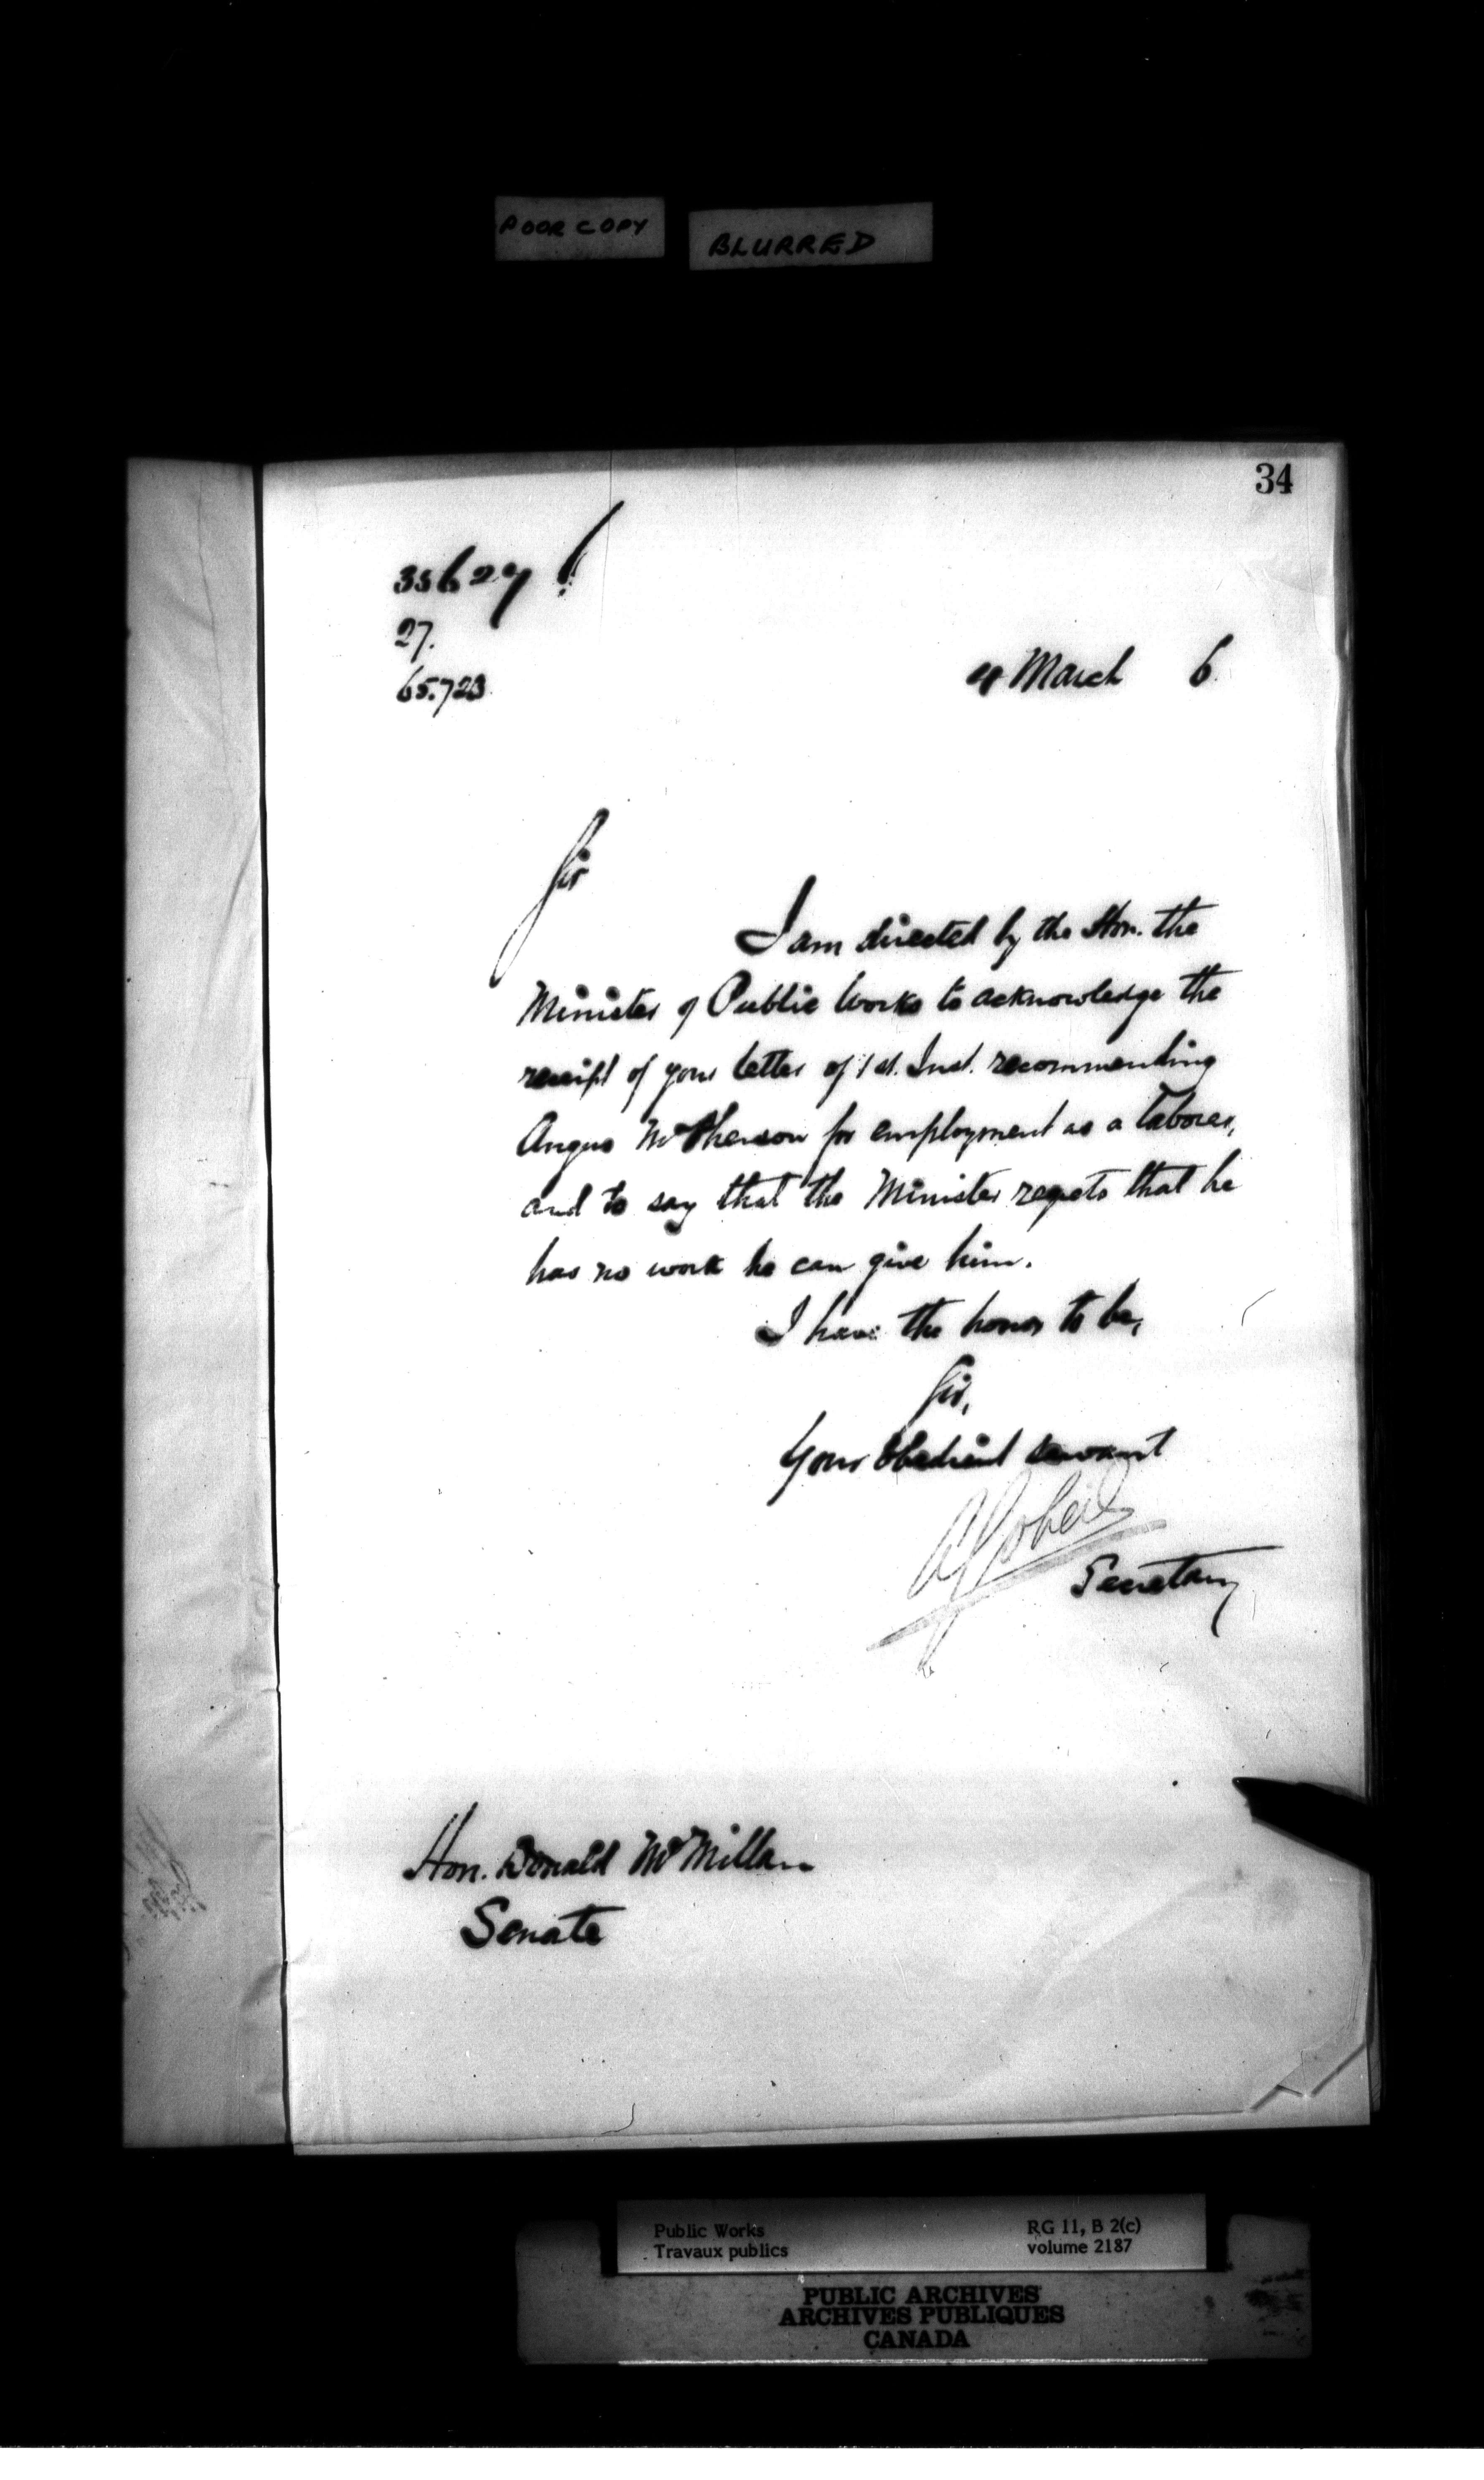 POOR COPY
BLURRED
34
35627
27.
65.723
4 March 6
Sir
I am directed by the Hon. the
Minister of Public Works to acknowledge the
receipt of your letter of 1st. Inst. recommending
Angus McPherson for employment as a laborer,
and to say that the Minister regrets that he
has no work he can give him.
I have the honor to be,
Sir,
Your obedient servant
A Gobeil
Secretary
Hon. Donald McMillan
Senate
Public Works
Travaux publics
RG 11, B 2(c)
volume 2187
PUBLIC ARCHIVES
ARCHIVES PUBLIQUES
CANADA